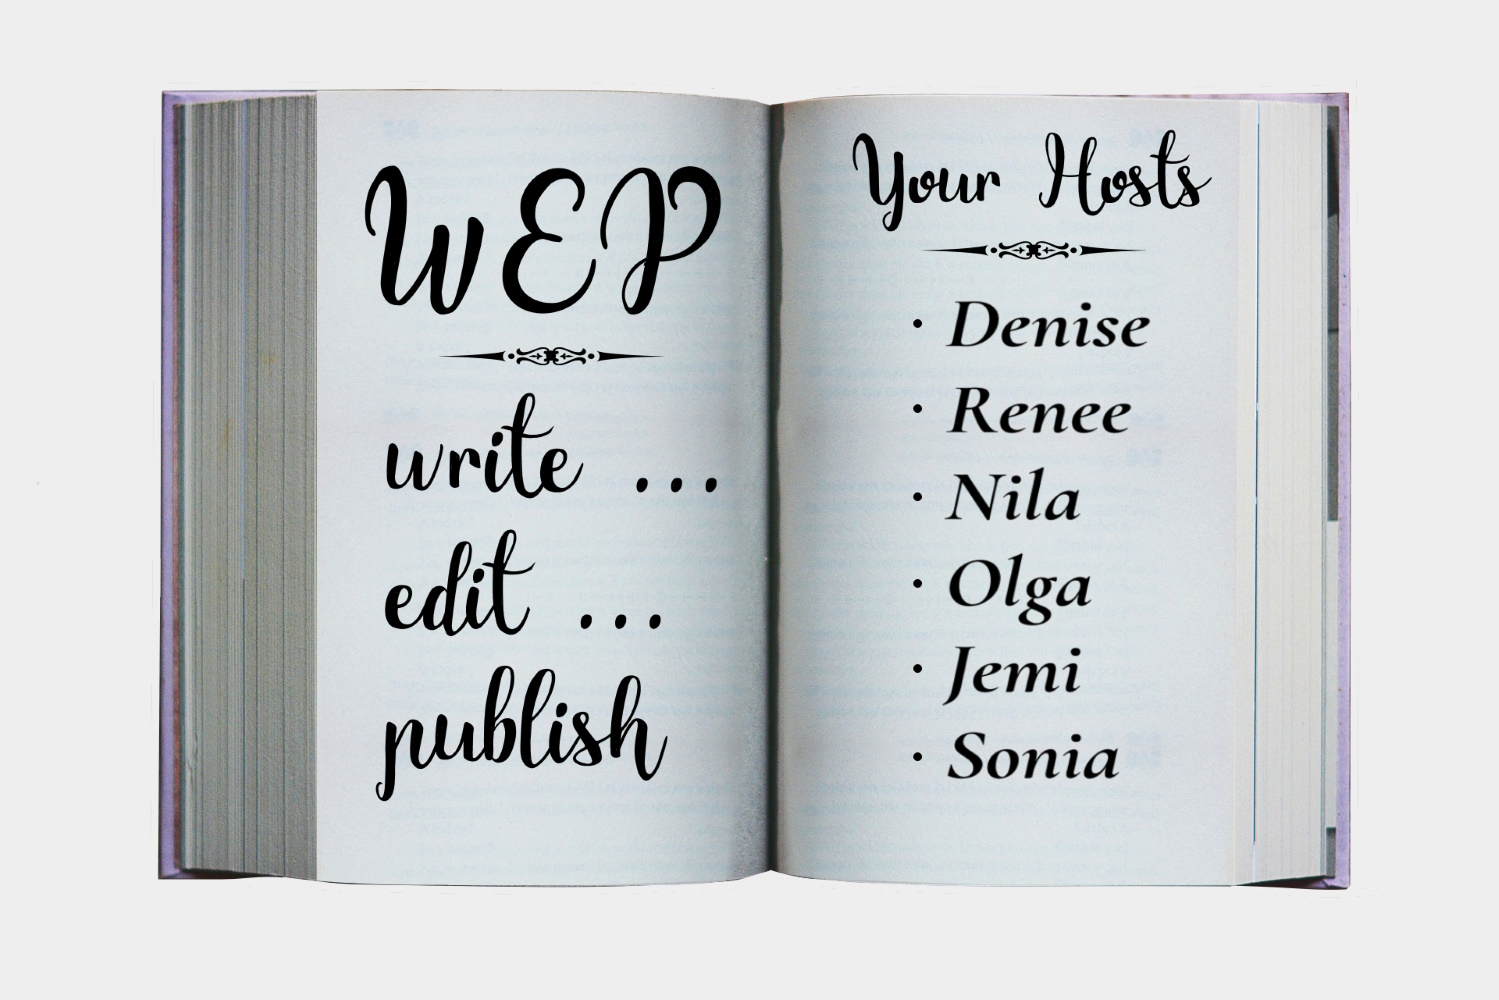 WEP
write ...
edit ...
publish
Your Hosts
• Denise
• Renee
• Nila
• Olga
• Jemi
• Sonia